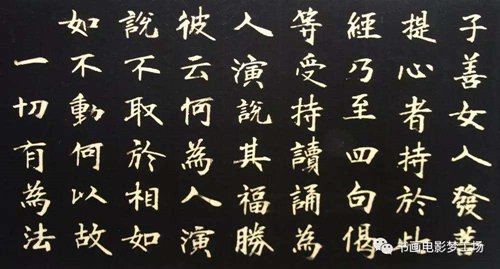 子善女人發菩
提心者持於此
經乃至四句偈
等受持讀誦為
人演說其福勝
彼云何為人演
說不取於相如
如不動何以故
一切有為法
书画电影梦工场